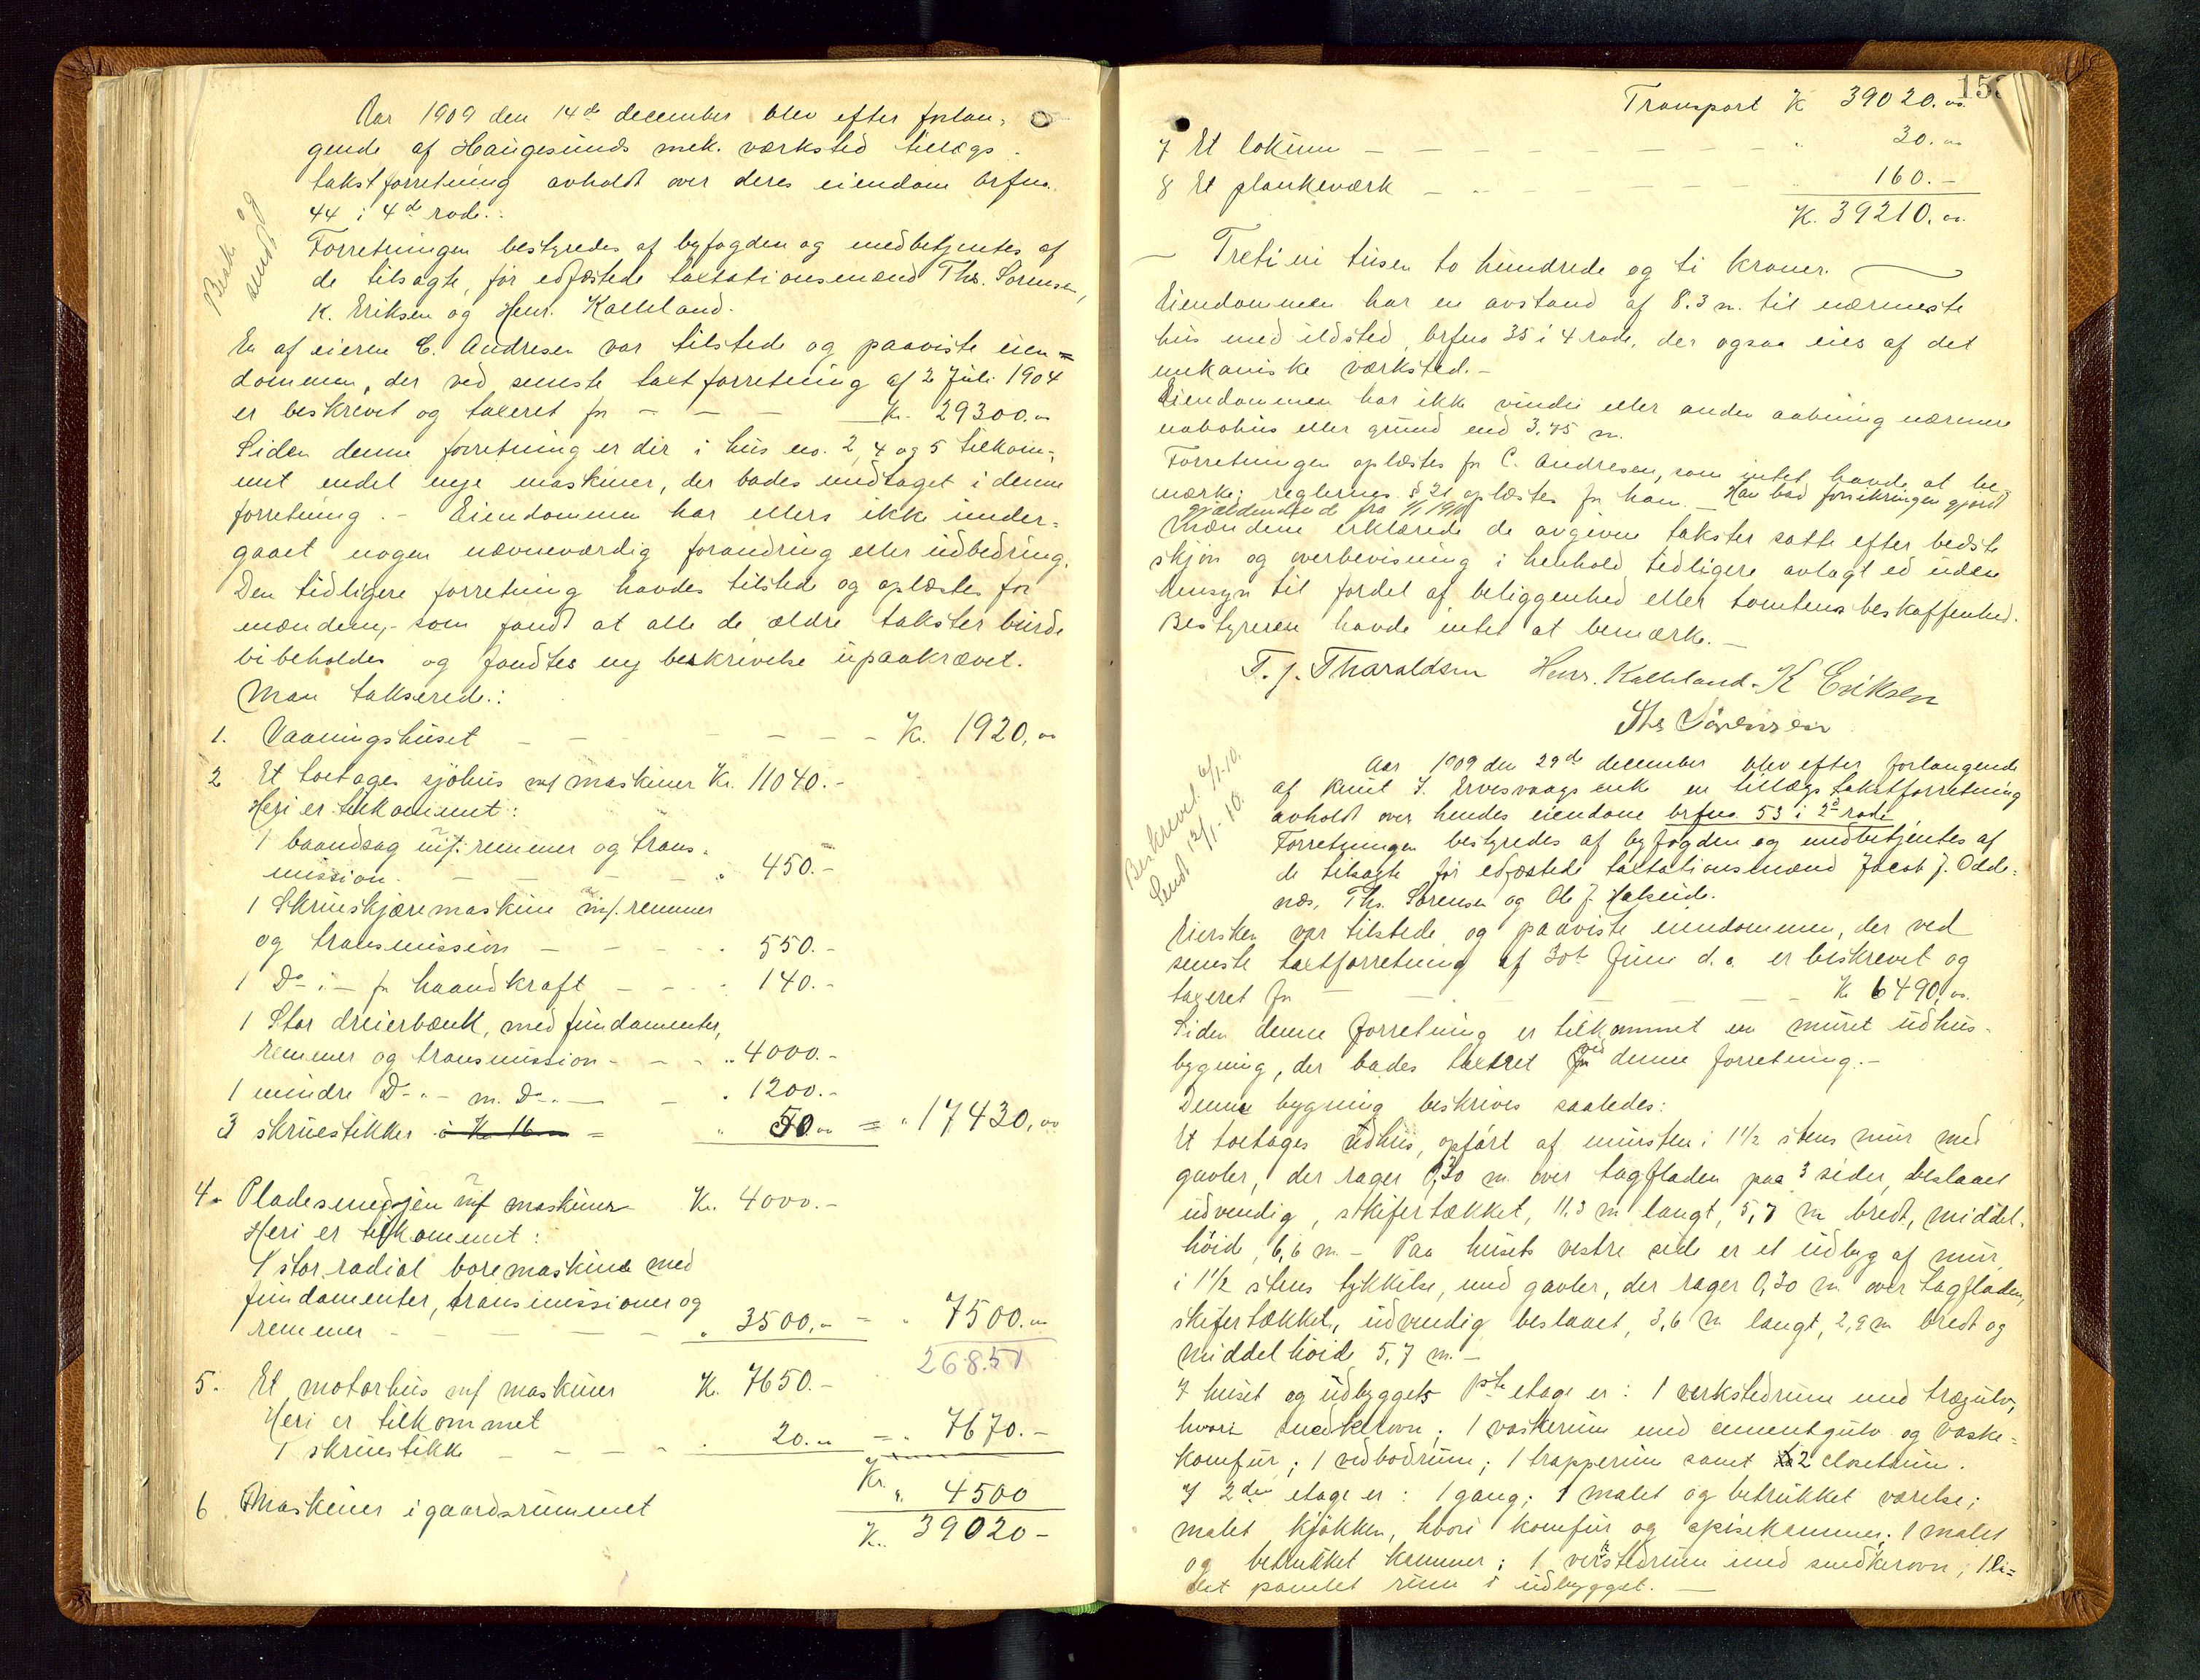 Aar 1909 den 14de december blev efter forlan-
gende af Haugesunds mek. værksted tillægs-
takstforretning avholdt over deres eiendom brfno.
44 i 4de rode.:
Besk. og
sendt
Forretningen bestyredes af byfogden og medbetjentes af
de tilsagte, før edfæstede taxtationsmænd Ths. Sørensen,
K. Eriksen og Henr. Kalleland.
En af eierne C. Andresen var tilstede og paaviste eien=
dommen, der ved seneste taxtforretning af 2 Juli 1904
er beskrevet og taxeret for — — — Kr. 29300.oo
Siden denne forretning er der i hus no. 2, 4 og 5 tilkom-
met endel nye maskiner, der bades medtaget i denne
forretning. — Eiendommen har ellers ikke under-
gaaet nogen nævneværdig forandring eller udbedring.
Den tidligere forretning havdes tilstede og oplæstes for
mændene, som fandt at alle de ældre takster burde
bibeholdes og fandtes ny beskrivelse upaakrævet.
Man takserede.:
1. Vaaningshuset — — — — — Kr. 1920,oo
2 Et toetages sjøhus m/ maskiner Kr. 11040.-
Heri er tilkommet:
1 baandsag m/ remmer og trans-
mission. — — — — „ 450.-
1 Skrueskjæremaskine m/. remmer
og transmission — — — „ 550.-
1 Do :- for haandkraft — — „ 140.-
1 Stor dreierbænk, med fundamenter,
remmer og transmission - - - „ 4000.-
1 mindre Do-.- m. Do-.— — „ 1200.-
3 skruestikker à Kr 16 — = „ 50.oo = „ 17430,oo
4. Pladesmedjen m/ maskiner Kr. 4000.-
Heri er tilkommet:
1 stor radial boremaskine med
fundamenter, transmissioner og
remmer - — — — „ 3500,- — „ 7500.oo
26851
5. Et motorhus m/ maskiner K. 7650.-
Heri er tilkommet
1 skruestikke — — — „ 20.oo — „ 7670.-
6 Maskiner i gaardsrummet Kr. „ 4500
K. 39020-
153
Transport K 39020.oo
7 Et lokum — — — — — — — „ 30.oo
8 Et plankeværk — — — — 160.-
K. 39210.oo.
— Treti ni tusen to hundrede og ti kroner. —
Eiendommen har en avstand af 8.3 m. til nærmeste
hus med ildsted, brfno 35 i 4 rode, der ogsaa eies af det
mekaniske værksted.-
Eiendommen har ikke vindu eller anden aabning nærmere
nabohus eller grund end 3.75 m.
Forretningen oplæstes for C. Andresen, som intet havde at be-
mærke; reglernes § 21 oplæstes for ham. — Han bad forsikringen gjort
gjældende fra 1/1 1910
Mændene erklærede de avgivne takster satte efter bedste
skjøn og overbevisning i henhold tidligere avlagt ed uden
hensyn til fordel af beliggenhed eller tomtens beskaffenhed.
Bestyreren havde intet at bemærke.—
T. J. Tharaldsen Henr. Kalleland. K Eriksen
Ths Sørensen
Beskrevet 6/1-10.
Sendt 12/1-10.
Aar 1909 den 29de december blev efter forlangende
af Knut J. Ervesvaags enke en tillægs takstforretning
avholdt over hendes eiendom brfno. 53 i 2de rode
Forretningen bestyredes af byfogden og medbetjentes af
de tilsagte før edfæstede taxtationsmænd Jacob J. Odde-
næs, Ths. Sørensen og Ole J. Halseide.
Eiersken var tilstede og paaviste eiendommen, der ved
seneste taxtforretning af 30te Juni d.a. er beskrevet og
taxeret for — — — — — K 6490,oo.
Siden denne forretning er tilkommet en muret udhus-
bygning, der bades taxeret ved denne forretning.-
Denne bygning beskrives saaledes:
Et toetages udhus, opført af mursten i 1½ stens mur med
gavler, der rager 0,30 m. over tagfladen paa 3 sider, beslaaet
udvendig, skifertækket, 11.3 m langt, 5,7 m bredt, middel-
høide 6,6 m. — Paa husets vestre side er et udbyg af mur
i 1½ stens tykkelse, med gavler, der rager 0,30 m over tagfladen,
skifertækket, udvendig beslaaet, 3,6 m langt, 2,9 m bredt og
middelhøide 5,7 m.-
I huset og udbyggets 1ste etage er: 1 verkstedrum med trægulv,
hvori snedkerovn; 1 vaskerum med cementgulv og vaske-
komfur; 1 vedbodrum; 1 trapperum samt 2 closetrum.
I 2den etage er: 1 gang; 1 malet og betrukket værelse;
malet kjøkken, hvori komfur og spisekammer; 1 malet
og betrukket kammer; 1 verkstedrum med snedkerovn, 1 li-
det panelet rum i udbygget. —